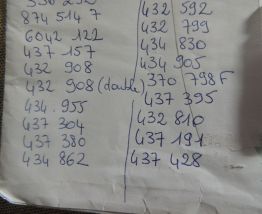 874 514 7
6042 122
437 157
432 908
432 908 (double)
434.955
437 304
437 380
434 862
432 592
432 799
434 830
434 905
370 798 F
437 395
432 810
437 191
437 428